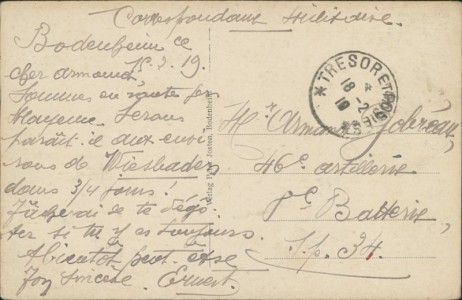 Correspondance Militaire.
Bodenheim ce
15.2.19.
cher armand.
Sommes en route pour
Mayence. Serons
paraît il aux envi
rons de Wiesbaden
dans 3/4 jours!
Tâcherai de te dégo-
ter si tu y es toujours.
A bientôt peut-être
Ton sincère Ernest.
Verlag Jos. Bodenheim
* TRESOR ET POSTES *
18-2
19
Mr Armand
46e artillerie
Batterie,
S.p. 34.